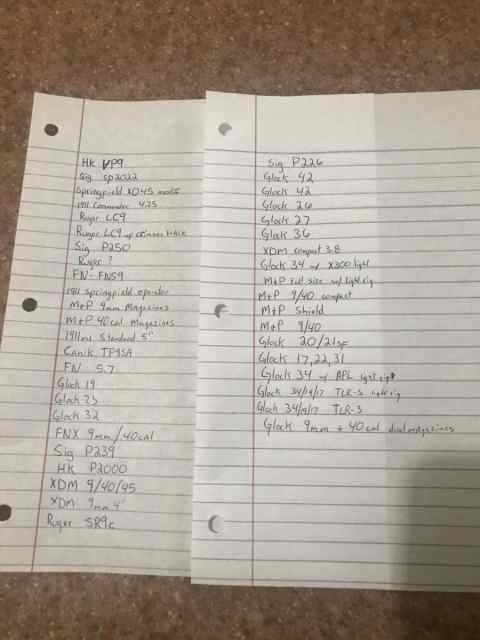 HK VP9
Sig sp2022
Springfield XD45 mod2
1911 Commander 4.25
Ruger LC9
Ruger LC9 w/
Sig P250
Ruger ?
FN FNS9
1911 Springfield operator
M+P 9mm Magazines
M+P 40cal Magazines
1911 Standard 5"
Canik TP9SA
FN 5.7
Glock 19
Glock 23
Glock 32
FNX 9mm/40cal
Sig P239
HK P2000
XDM 9/40/45
XDM 9mm 4"
Ruger SR9c
Sig P226
Glock 42
Glock 42
Glock 26
Glock 27
Glock 36
XDM compact 3.8
Glock 34 w/ X300 light
M+P full size w/ light rig
M+P 9/40 compact
M+P Shield
M+P 9/40
Glock 20/21sf
Glock 17,22,31
Glock 34 w/ APL light rig
Glock 34/19/17 TLR-3 light rig
Glock 34/19/17 TLR-3
Glock 9mm + 40 cal dual magazines